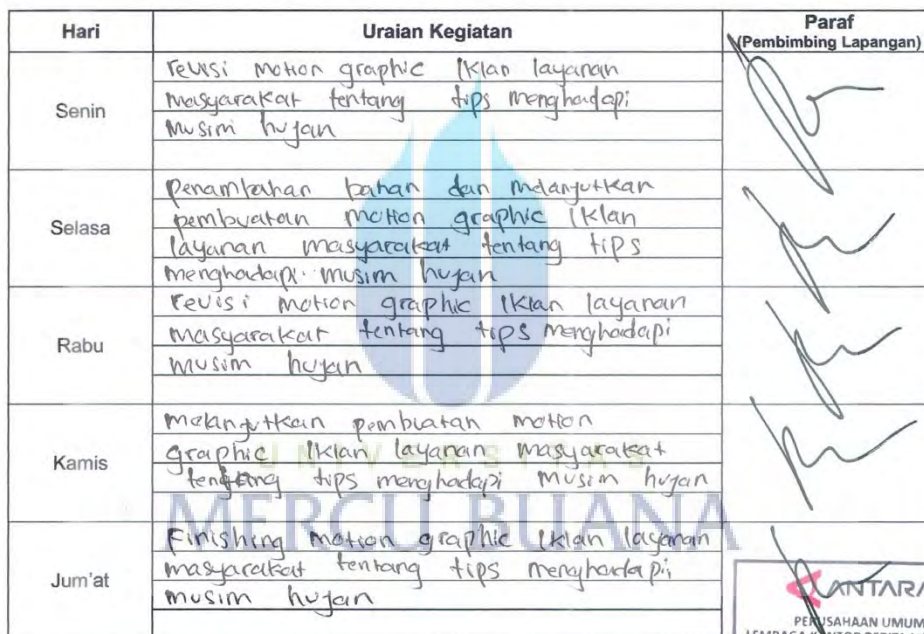 Hari Uraian Kegiatan Paraf
(Pembimbing Lapangan)
Senin
revisi motion graphic Iklan layanan
masyarakat tentang tips menghadapi
musim hujan
Selasa
penambahan bahan dan melanjutkan
pembuatan motion graphic Iklan
layanan masyarakat tentang tips
menghadapi musim hujan
Rabu
revisi motion graphic Iklan layanan
masyarakat tentang tips menghadapi
musim hujan
Kamis
melanjutkan pembuatan motion
graphic Iklan layanan masyarakat
tentang tips menghadapi musim hujan
UNIVERSITAS
MERCU BUANA
Jum'at
Finishing motion graphic Iklan layanan
masyarakat tentang tips menghadapi
musim hujan
ANTARA
PERUSAHAAN UMUM